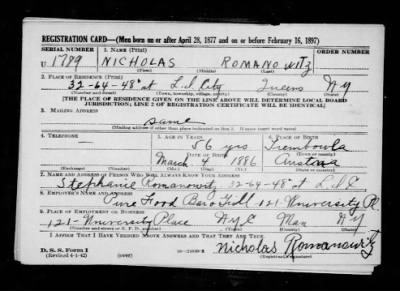 REGISTRATION CARD—(Men born on or after April 28, 1877 and on or before February 16, 1897)
SERIAL NUMBER 1. NAME (Print) ORDER NUMBER
U 1789 NICHOLAS ROMANOWITZ
(First) (Middle) (Last)
2. PLACE OF RESIDENCE (Print)
32-64-48" st L.I. City Queens NY
(Number and street) (Town, township, village, or city) (County) (State)
[THE PLACE OF RESIDENCE GIVEN ON THE LINE ABOVE WILL DETERMINE LOCAL BOARD
JURISDICTION; LINE 2 OF REGISTRATION CERTIFICATE WILL BE IDENTICAL]
3. MAILING ADDRESS
Same
[Mailing address if other than place indicated on line 2. If same insert word same]
4. TELEPHONE 5. AGE IN YEARS 6. PLACE OF BIRTH
— 56 yrs Trembowla
DATE OF BIRTH (Town or county)
March 4 1886 Austria
(Exchange) (Number) (Mo.) (Day) (Yr.) (State or country)
7. NAME AND ADDRESS OF PERSON WHO WILL ALWAYS KNOW YOUR ADDRESS
Stephanie Romanowitz 32-64-48" st L.I.C
8. EMPLOYER'S NAME AND ADDRESS
Pure Food Bar & Grill 121 University Pl
9. PLACE OF EMPLOYMENT OR BUSINESS
121-University Place NYC Man NY
(Number and street or R. F. D. number) (Town) (County) (State)
I AFFIRM THAT I HAVE VERIFIED ABOVE ANSWERS AND THAT THEY ARE TRUE.
D. S. S. Form 1
(Revised 4-1-42) (over) Nicholas Romanowitz